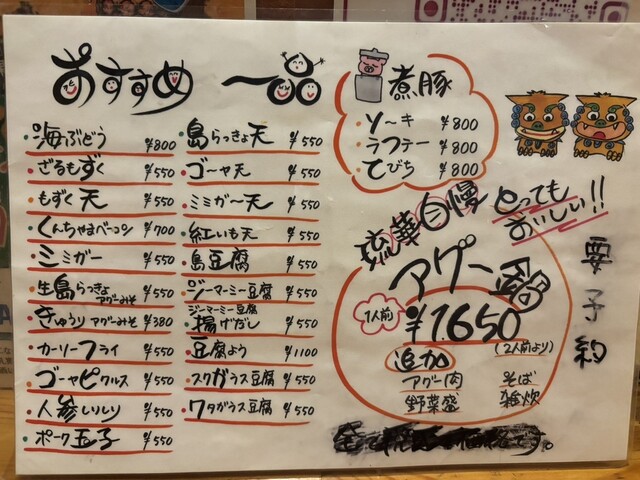 おすすめ 一品
海ぶどう ¥800
ざるもずく ¥550
もずく天 ¥550
くんちゃまベーコン ¥700
ミミガー ¥550
生島らっきょ アグーみそ ¥550
きゅうり アグーみそ ¥380
カーリーフライ ¥550
ゴーヤピクルス ¥550
人参しりしり ¥550
ポーク玉子 ¥550
島らっきょ天 ¥550
ゴーヤ天 ¥550
ミミガー天 ¥550
紅いも天 ¥550
島豆腐 ¥550
ジーマーミー豆腐 ¥550
ジーマーミー豆腐 揚げだし ¥550
豆腐よう ¥1100
スクガラス豆腐 ¥550
ワタガラス豆腐 ¥550
煮豚
ソーキ ¥800
ラフテー ¥800
てびち ¥800
琉華自慢
とっても
おいしい!!
アグー鍋
1人前
¥1.650
(2人前より)
追加
アグー肉 そば
野菜盛 雑炊
要予約